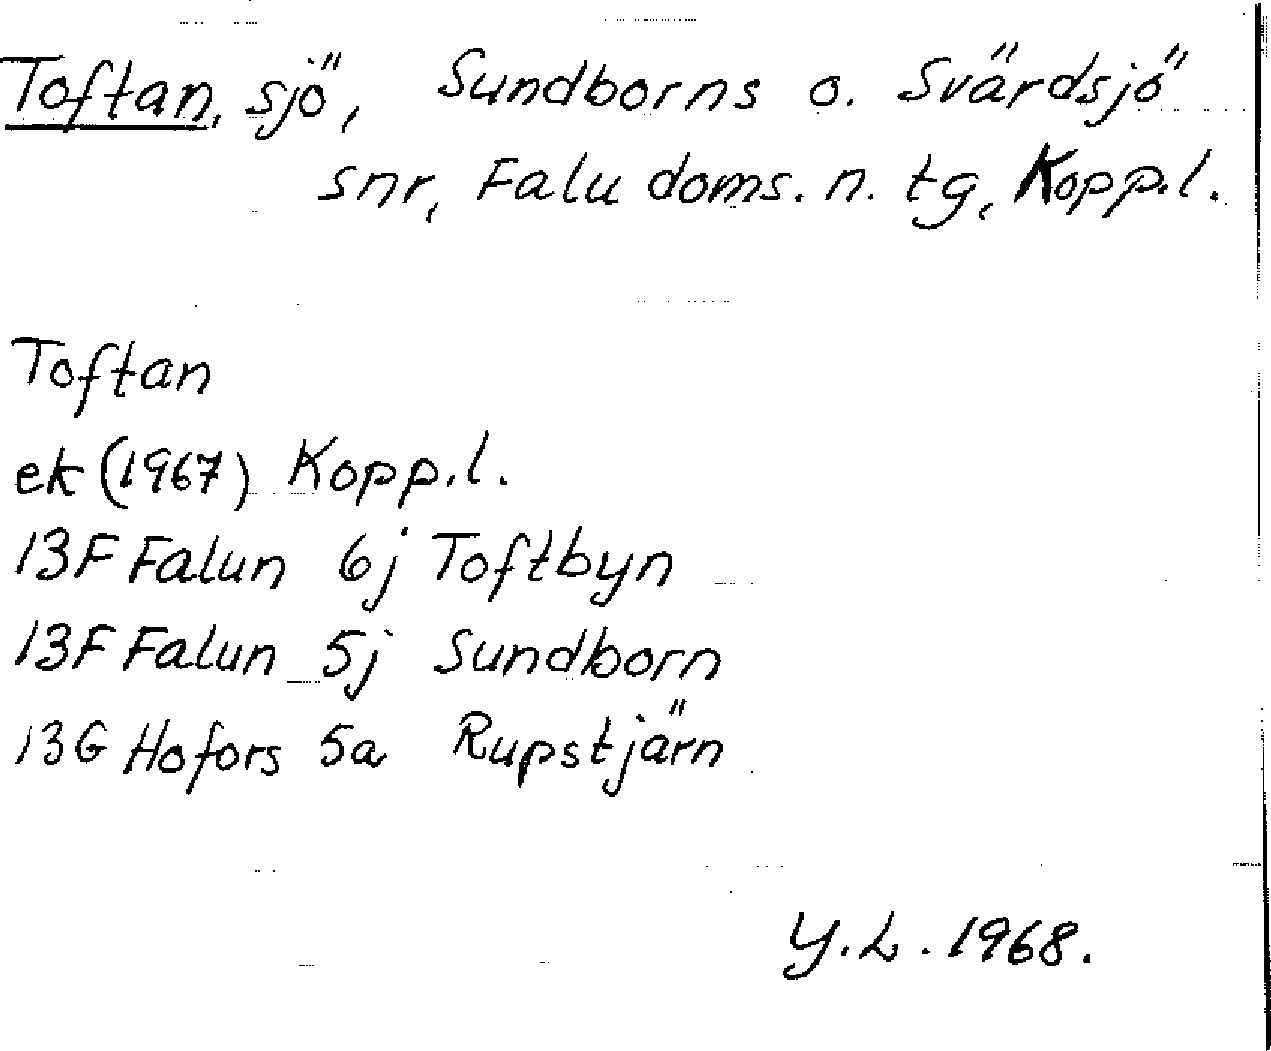 Toftan, sjö, Sundborns o. Svärdsjö
snr, Falu doms. n. tg, Kopp.l.
Toftan
ek (1967) Kopp.l.
13F Falun 6j Toftbyn
13F Falun 5j Sundborn
13G Hofors 5a Rupstjärn
Y.L. 1968.